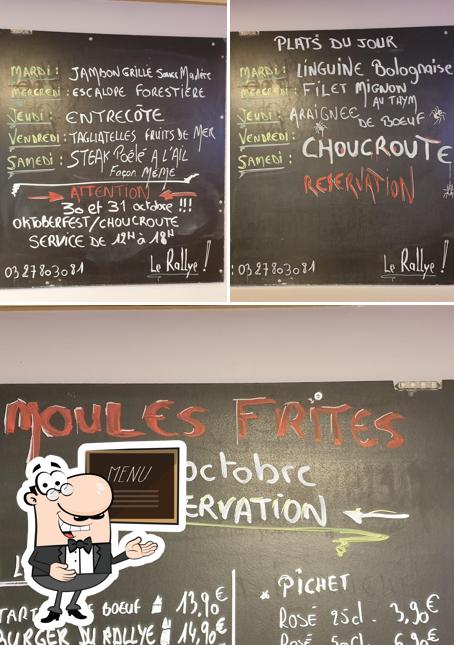 MARDI : JAMBON GRILLÉ Sauce Madère
MERCREDI : ESCALOPE FORESTIÈRE
JEUDI : ENTRECÔTE
VENDREDI : TAGLIATELLES FRUITS DE MER
SAMEDI : STEAK Poêlé A L'AIL
Façon MÉMÉ
ATTENTION
30 et 31 octobre !!!
OKTOBERFEST/CHOUCROUTE
SERVICE DE 12H à 18H
0327803081 Le Rallye !
PLATS DU JOUR
MARDI : LINGUINE Bolognaise
MERCREDI : FILET MIGNON
AU THYM
JEUDI : ARAIGNÉE
DE BOEUF
VENDREDI :
SAMEDI : CHOUCROUTE
RESERVATION
0327803081 Le Rallye !
MOULES FRITES
octobre
ERVATION
MENU
PICHET
TART BOEUF 13,90€
ROSÉ 25cl. 3,90€
BURGER DU RALLYE 14,90€
ROSÉ 50cl. 6,90€